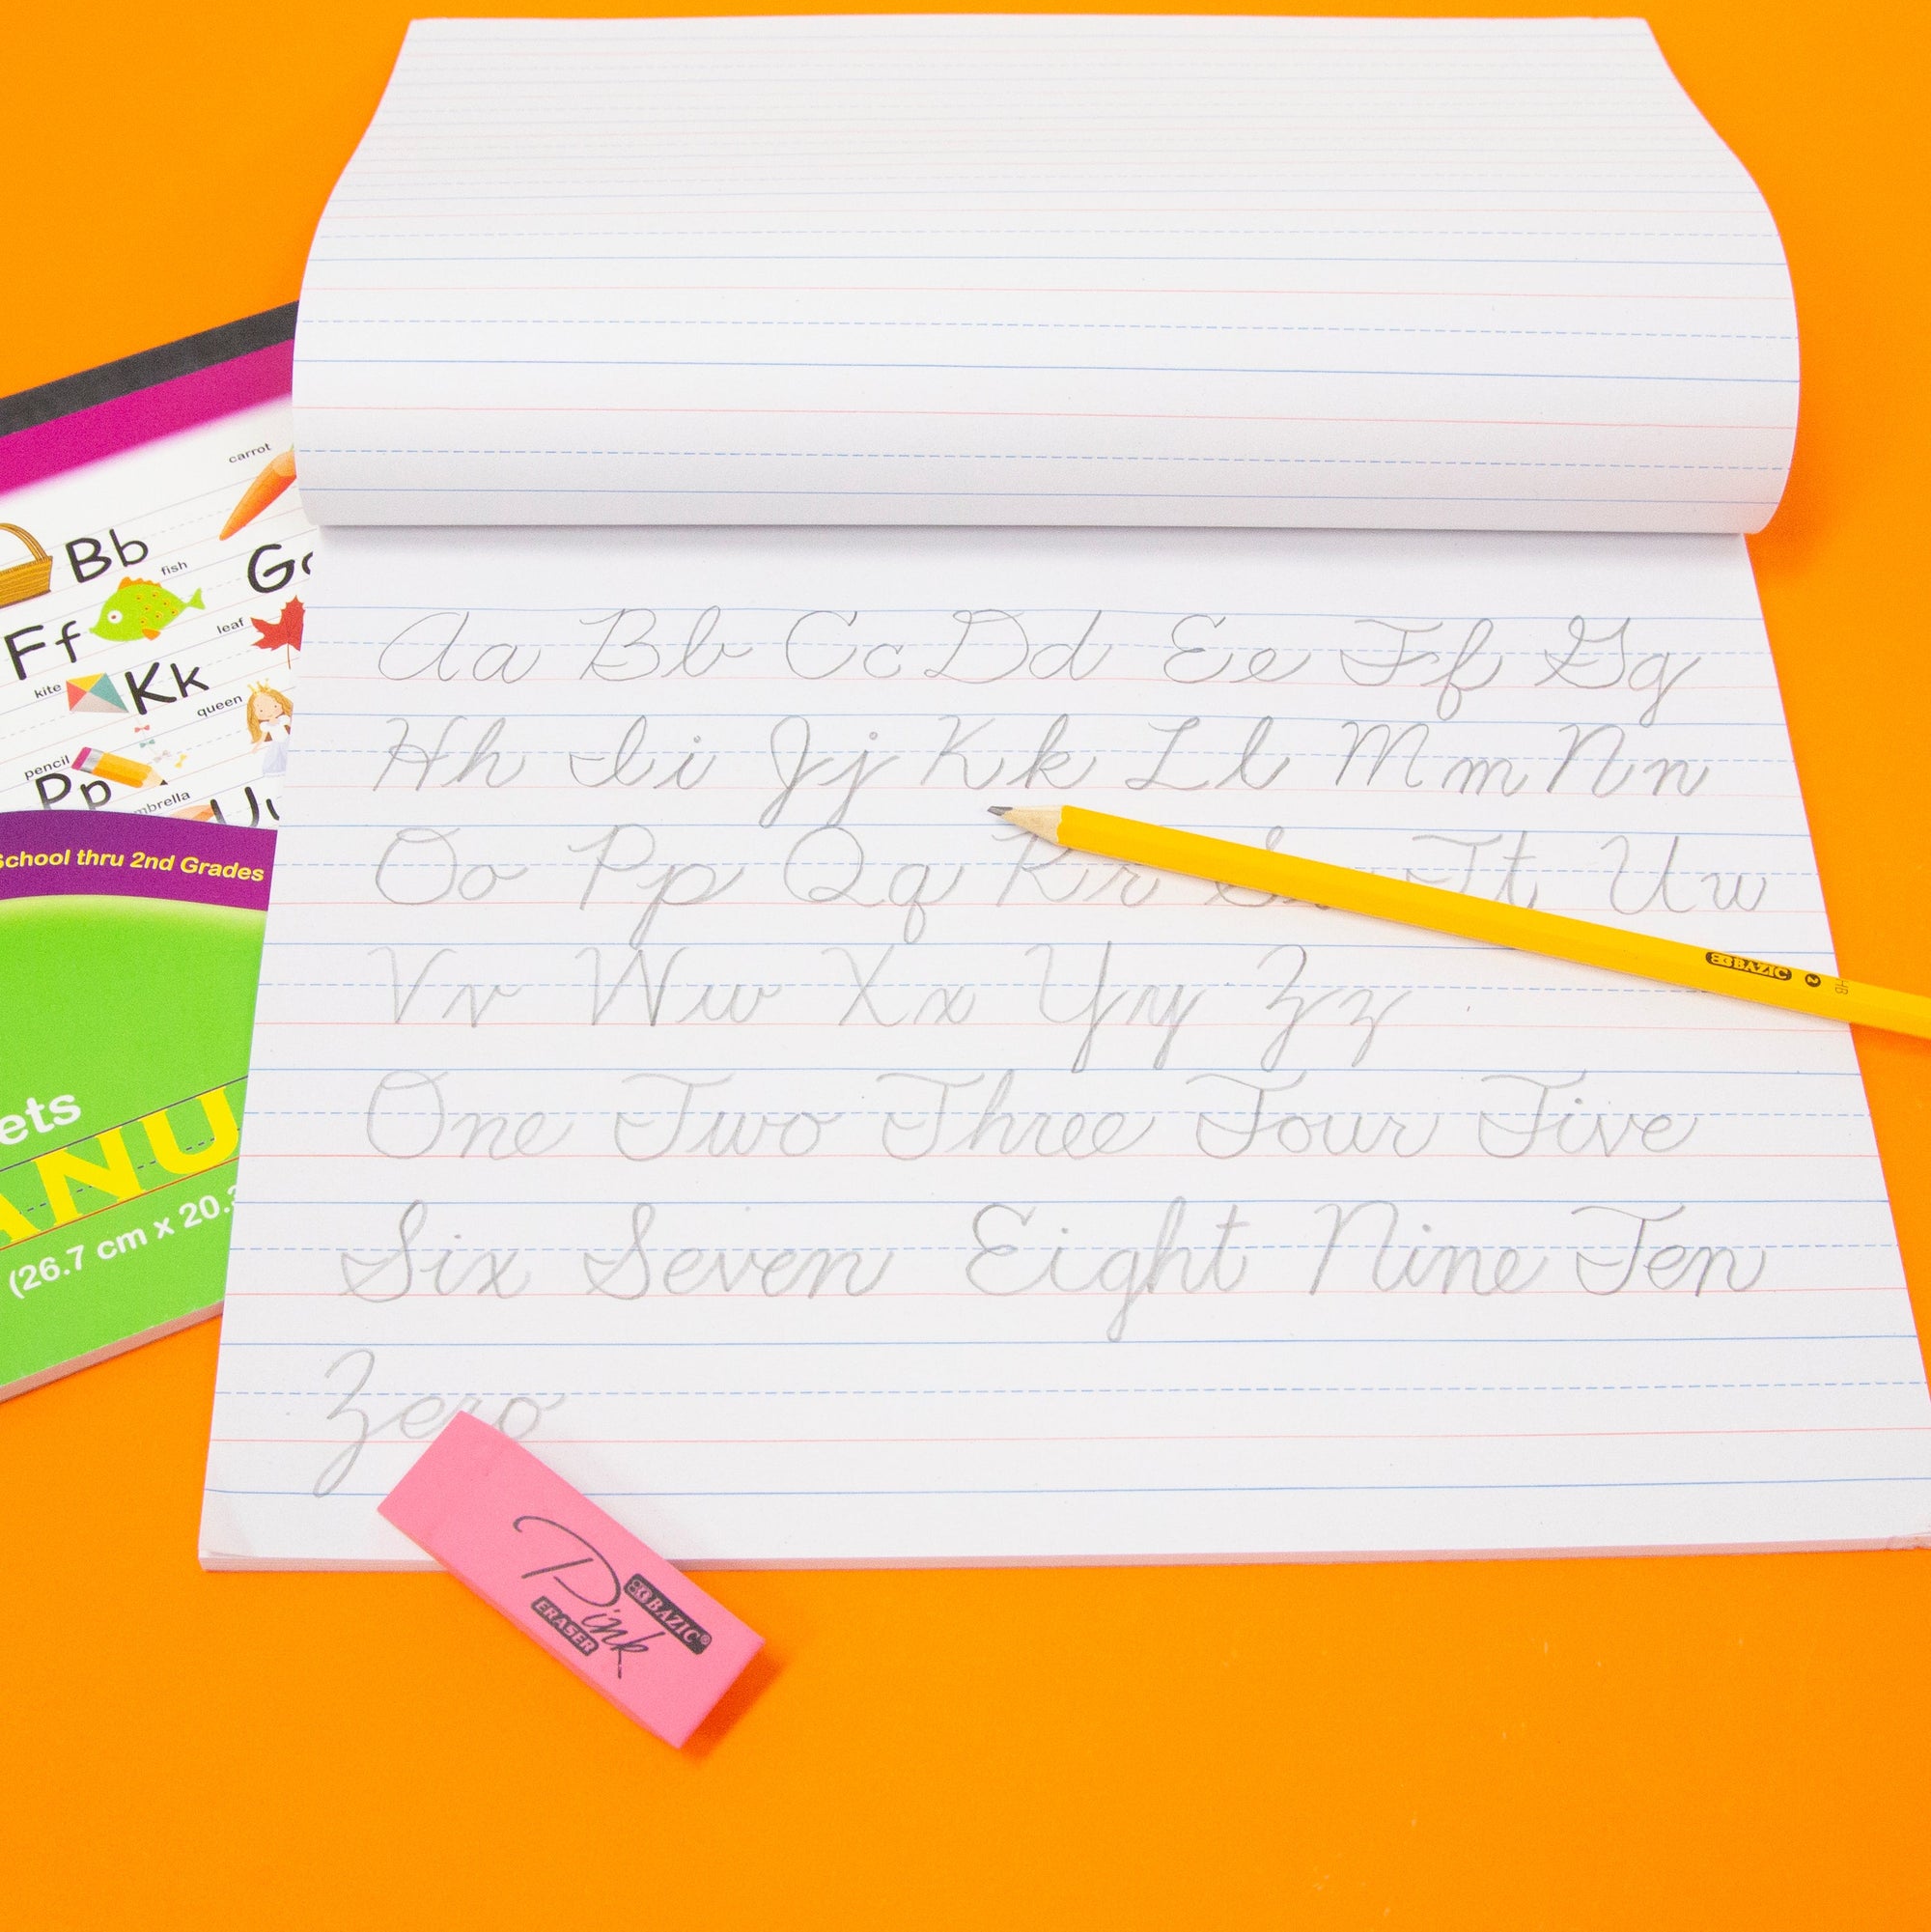 carrot
Bb
fish
Ff
leaf
kite
Kk
queen
pencil
Pp
School thru 2nd Grades
(26.7 cm x 20.3
Aa Bb Cc Dd Ee Ff Gg
Hh Ii Jj Kk Ll Mm Nn
Oo Pp Qq Rr Tt Uu
Vv Ww Xx Yy Zz
One Two Three Four Five
Six Seven Eight Nine Ten
Zero
BAZIC 2 HB
Pink
BAZIC®
ERASER